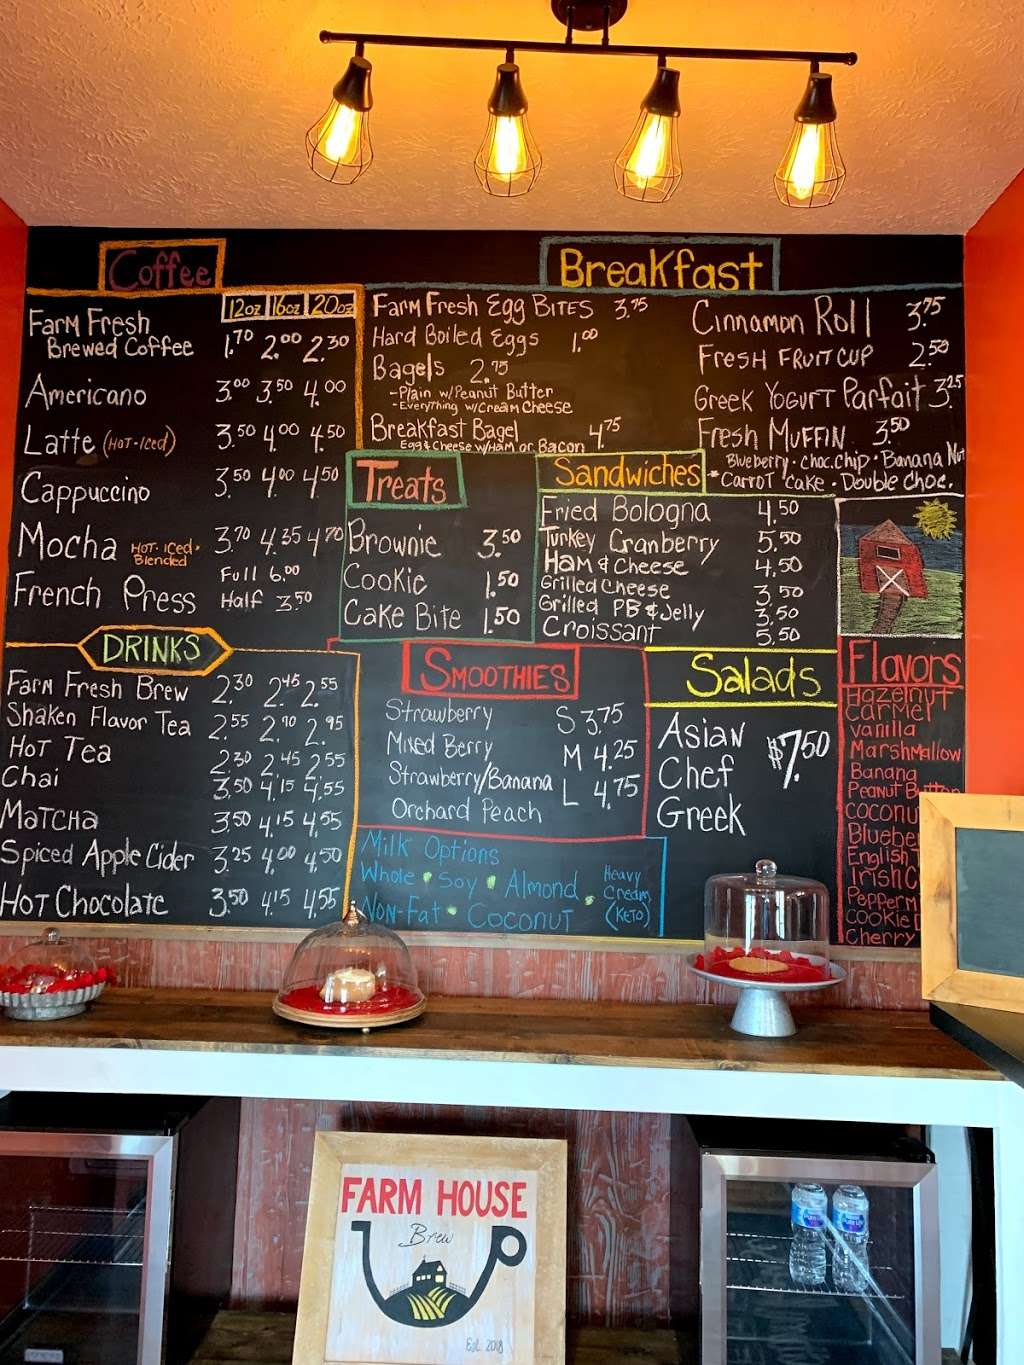 Coffee
12oz 16oz 20oz
Farm Fresh
Brewed Coffee 1.70 2.00 2.30
Americano 3.00 3.50 4.00
Latte (Hot-Iced) 3.50 4.00 4.50
Cappuccino 3.50 4.00 4.50
Mocha Hot. Iced. Blended 3.70 4.35 4.70
French Press Full 6.00
Half 3.50
Breakfast
Farm Fresh Egg Bites 3.75
Hard Boiled Eggs 1.00
Bagels 2.75
-Plain w/Peanut Butter
-Everything w/Cream Cheese
Breakfast Bagel 4.75
Egg & Cheese w/Ham or Bacon
Cinnamon Roll 3.75
Fresh Fruit Cup 2.50
Greek Yogurt Parfait 3.25
Fresh Muffin 3.50
Blueberry · Choc. Chip · Banana Nut
*Carrot Cake · Double Choc.
Treats
Brownie 3.50
Cookie 1.50
Cake Bite 1.50
Sandwiches
Fried Bologna 4.50
Turkey Cranberry 5.50
Ham & Cheese 4.50
Grilled Cheese 3.50
Grilled PB & Jelly 3.50
Croissant 5.50
Drinks
Farm Fresh Brew 2.30 2.45 2.55
Shaken Flavor Tea 2.55 2.70 2.95
Hot Tea 2.30 2.45 2.55
Chai 3.50 4.15 4.55
Matcha 3.50 4.15 4.55
Spiced Apple Cider 3.25 4.00 4.50
Hot Chocolate 3.50 4.15 4.55
Smoothies
Strawberry S 3.75
Mixed Berry M 4.25
Strawberry/Banana L 4.75
Orchard Peach
Milk Options
Whole · Soy · Almond ·
Non-Fat · Coconut
Heavy
Cream
(Keto)
Salads
Asian
Chef $7.50
Greek
Flavors
Hazelnut
Carmel
Vanilla
Marshmallow
Banana
Peanut Butter
Coconu
Blueber
English T
Irish C
Pepperm
Cookie D
Cherry
FARM HOUSE
Brew
Est. 2018